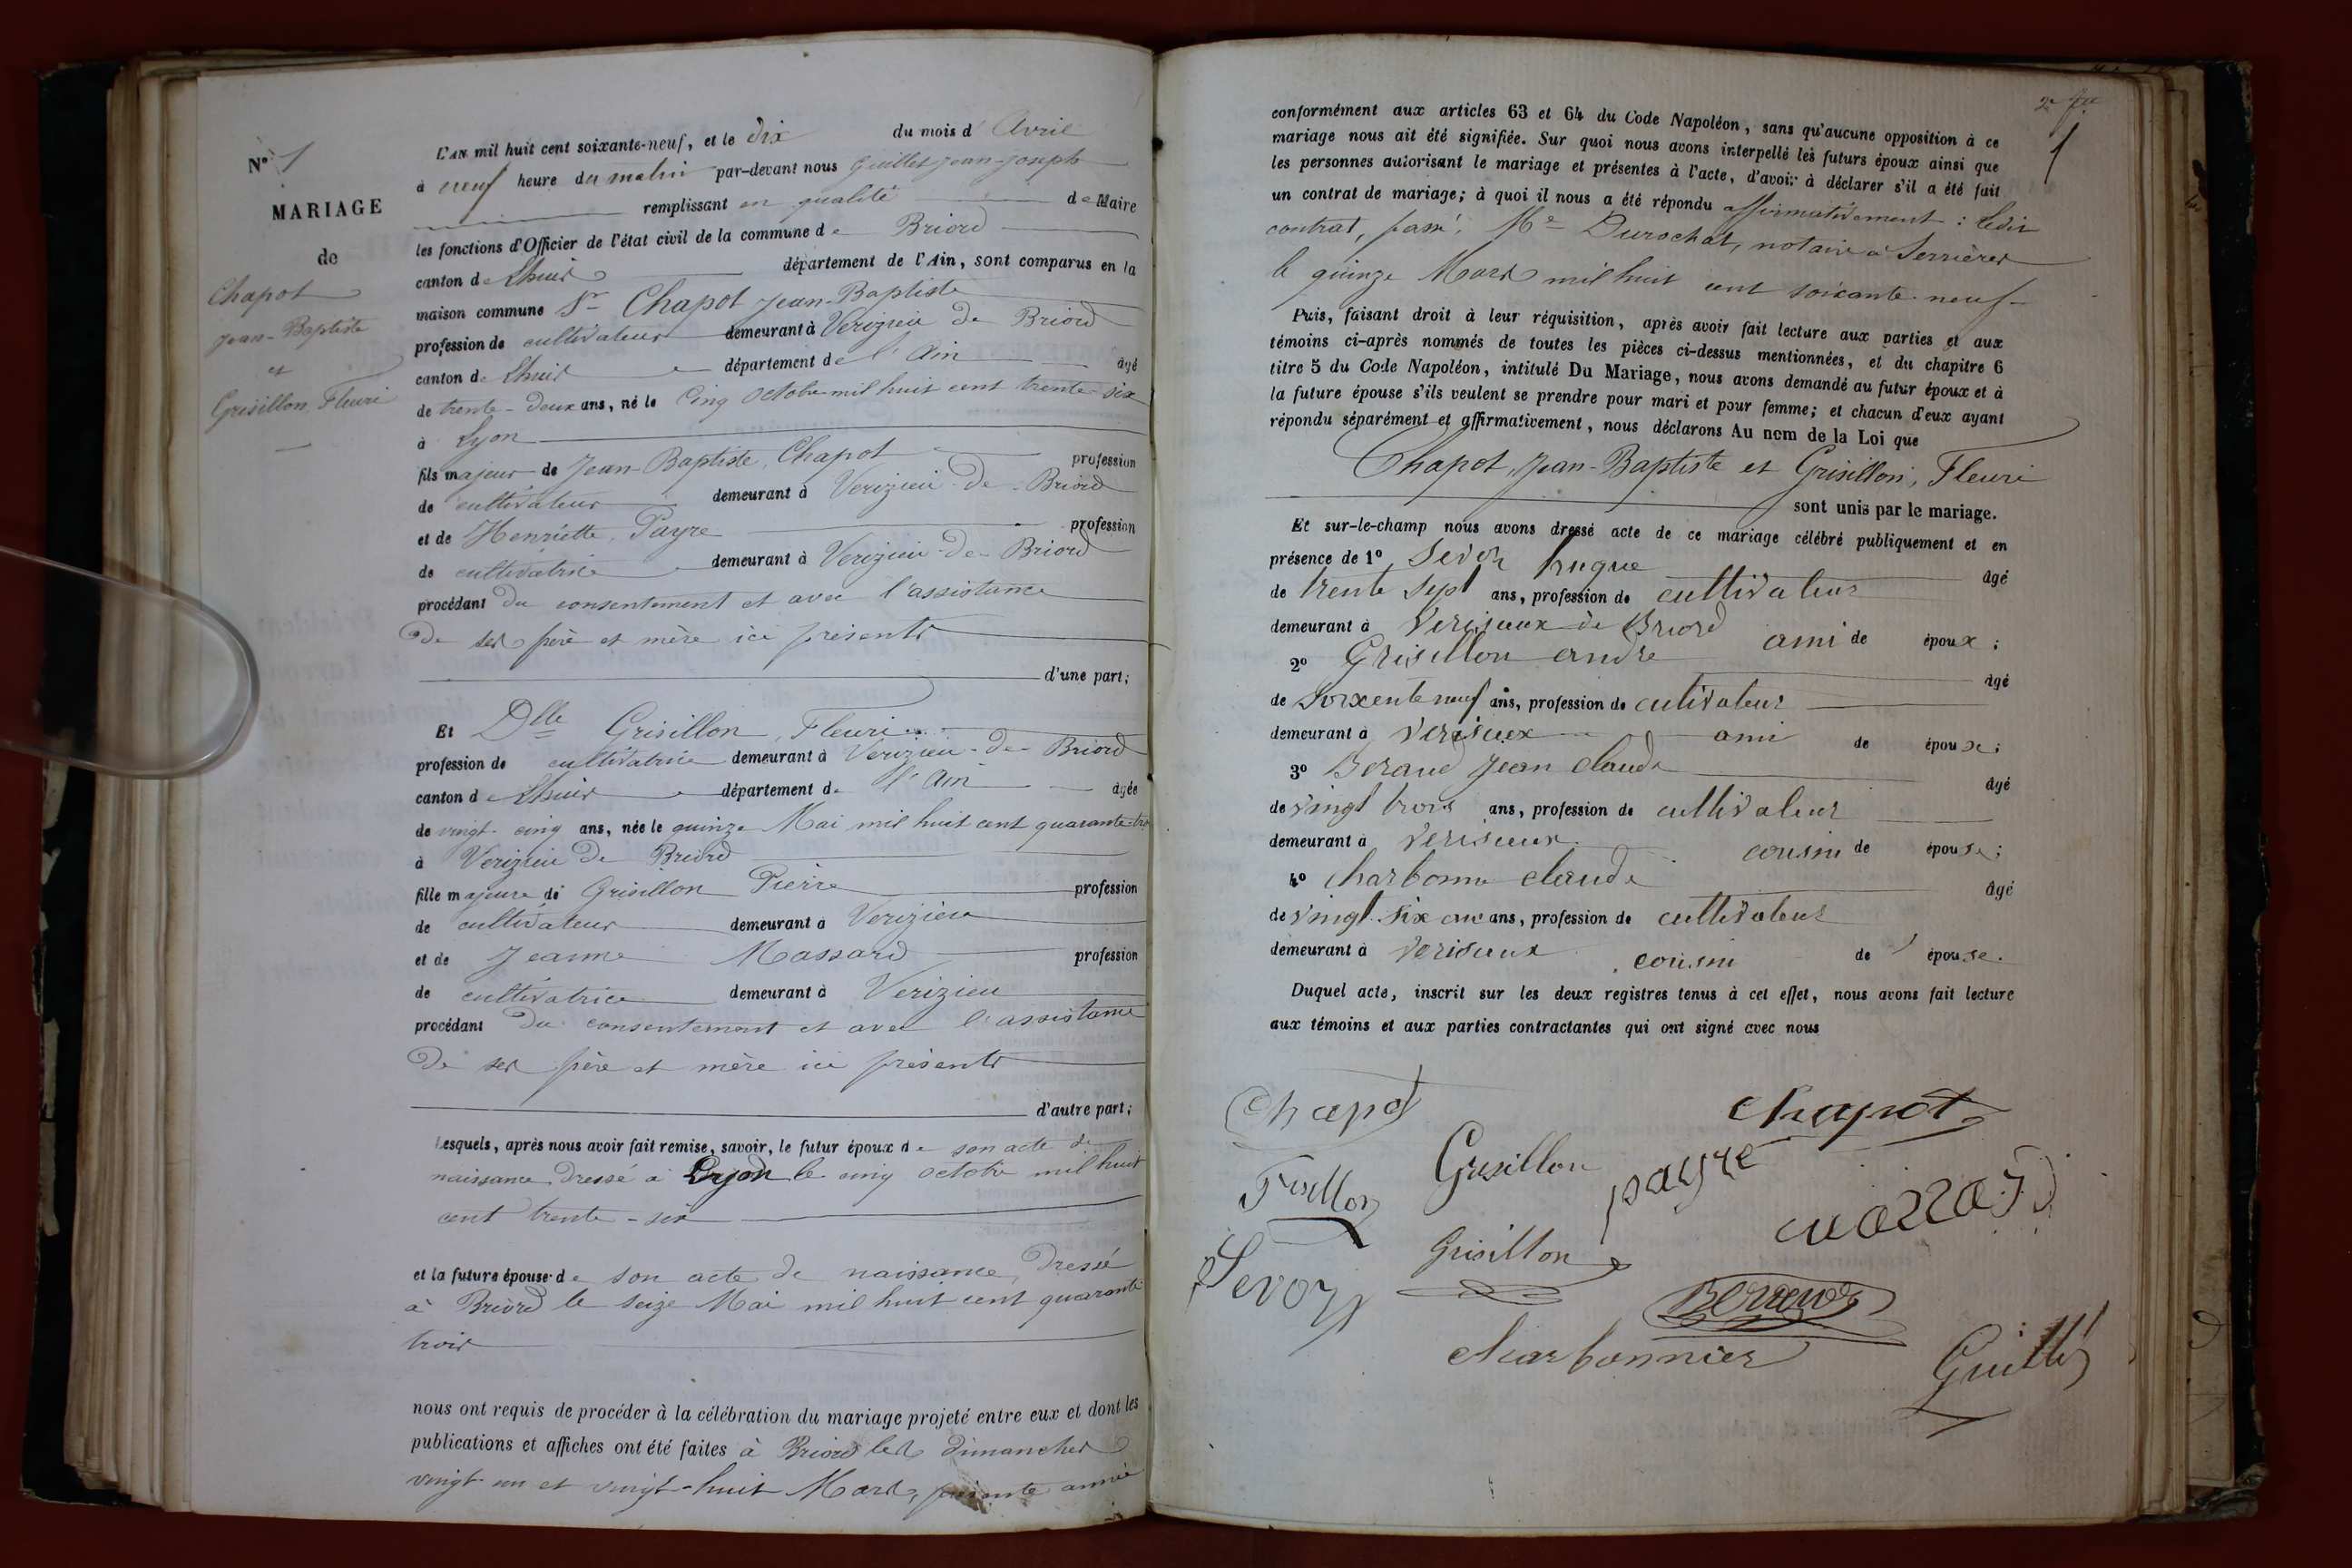 N° 1
MARIAGE
de
Chapot
Jean-Baptiste
et
Grisillon, Fleurie
L'AN mil huit cent soixante-neuf, et le dix du mois d'Avril
à neuf heure du matin par-devant nous Guillet Jean-Joseph
remplissant en qualité de Maire
les fonctions d'Officier de l'état civil de la commune de Briord
canton de Lhuis département de l'Ain, sont comparus en la
maison commune Sr Chapot Jean-Baptiste
profession de cultivateur demeurant à Verizieu de Briord
canton de Lhuis département de l'Ain âgé
de trente-deux ans, né le Cinq Octobre mil huit cent trente-six
à Lyon
fils majeur de Jean-Baptiste Chapot profession
de cultivateur demeurant à Verizieu-De-Briord
et de Henriette Payre profession
de cultivatrice demeurant à Verizieu-De-Briord
procédant du consentement et avec l'assistance
De ses père et mère ici présents
d'une part;
Et Dlle Grisillon, Fleurie
profession de cultivatrice demeurant à Verizieu-de-Briord
canton de Lhuis département de l'Ain âgée
de vingt-cinq ans, née le quinze Mai mil huit cent quarante-tro
à Verizieu De Briord
fille majeure de Grisillon Pierre profession
de cultivateur demeurant à Verizieu
et de Jeanne Massard profession
de cultivatrice demeurant à Verizieu
procédant du consentement et avec l'assistance
De ses père et mère ici présents
d'autre part;
Lesquels, après nous avoir fait remise, savoir, le futur époux de son acte de
naissance dressé à Lyon le cinq octobre mil huit
cent trente-six
et la future épouse de son acte de naissance, dressé
à Briord le seize Mai mil huit cent quarante
trois
nous ont requis de procéder à la célébration du mariage projeté entre eux et dont les
publications et affiches ont été faites à Briord les dimanches
vingt-un et vingt-huit Mars, présente année
1
conformément aux articles 63 et 64 du Code Napoléon, sans qu'aucune opposition à ce
mariage nous ait été signifiée. Sur quoi nous avons interpellé les futurs époux ainsi que
les personnes autorisant le mariage et présentes à l'acte, d'avoir à déclarer s'il a été fait
un contrat de mariage; à quoi il nous a été répondu affirmativement: ledit
contrat, passé, Me Durochat, notaire à Serrières
le quinze Mars mil huit cent soixante-neuf
Puis, faisant droit à leur réquisition, après avoir fait lecture aux parties et aux
témoins ci-après nommés de toutes les pièces ci-dessus mentionnées, et du chapitre 6
titre 5 du Code Napoléon, intitulé Du Mariage, nous avons demandé au futur époux et à
la future épouse s'ils veulent se prendre pour mari et pour femme; et chacun d'eux ayant
répondu séparément et affirmativement, nous déclarons Au nom de la Loi que
Chapot, Jean-Baptiste et Grisillon, Fleurie
sont unis par le mariage.
Et sur-le-champ nous avons dressé acte de ce mariage célébré publiquement et en
présence de 1° Sevoz hugue âgé
de trente sept ans, profession de cultivateur
demeurant à Verisieux de Briord ami de époux;
2° Grisillon andre âgé
de Soixente neuf ans, profession de cultivateur
demeurant à Verisieux ami de épouse;
3° Beraud Jean Claude âgé
de vingt trois ans, profession de cultivateur
demeurant à Verisieux cousin de épouse;
4° Charbonne claude âgé
de vingt six ans, profession de cultivateur
demeurant à Verisieux cousin de épouse.
Duquel acte, inscrit sur les deux registres tenus à cet effet, nous avons fait lecture
aux témoins et aux parties contractantes qui ont signé avec nous
Chapot
Chapot
Grisillon
payre
Grisillon
Sevoz
Charbonnier